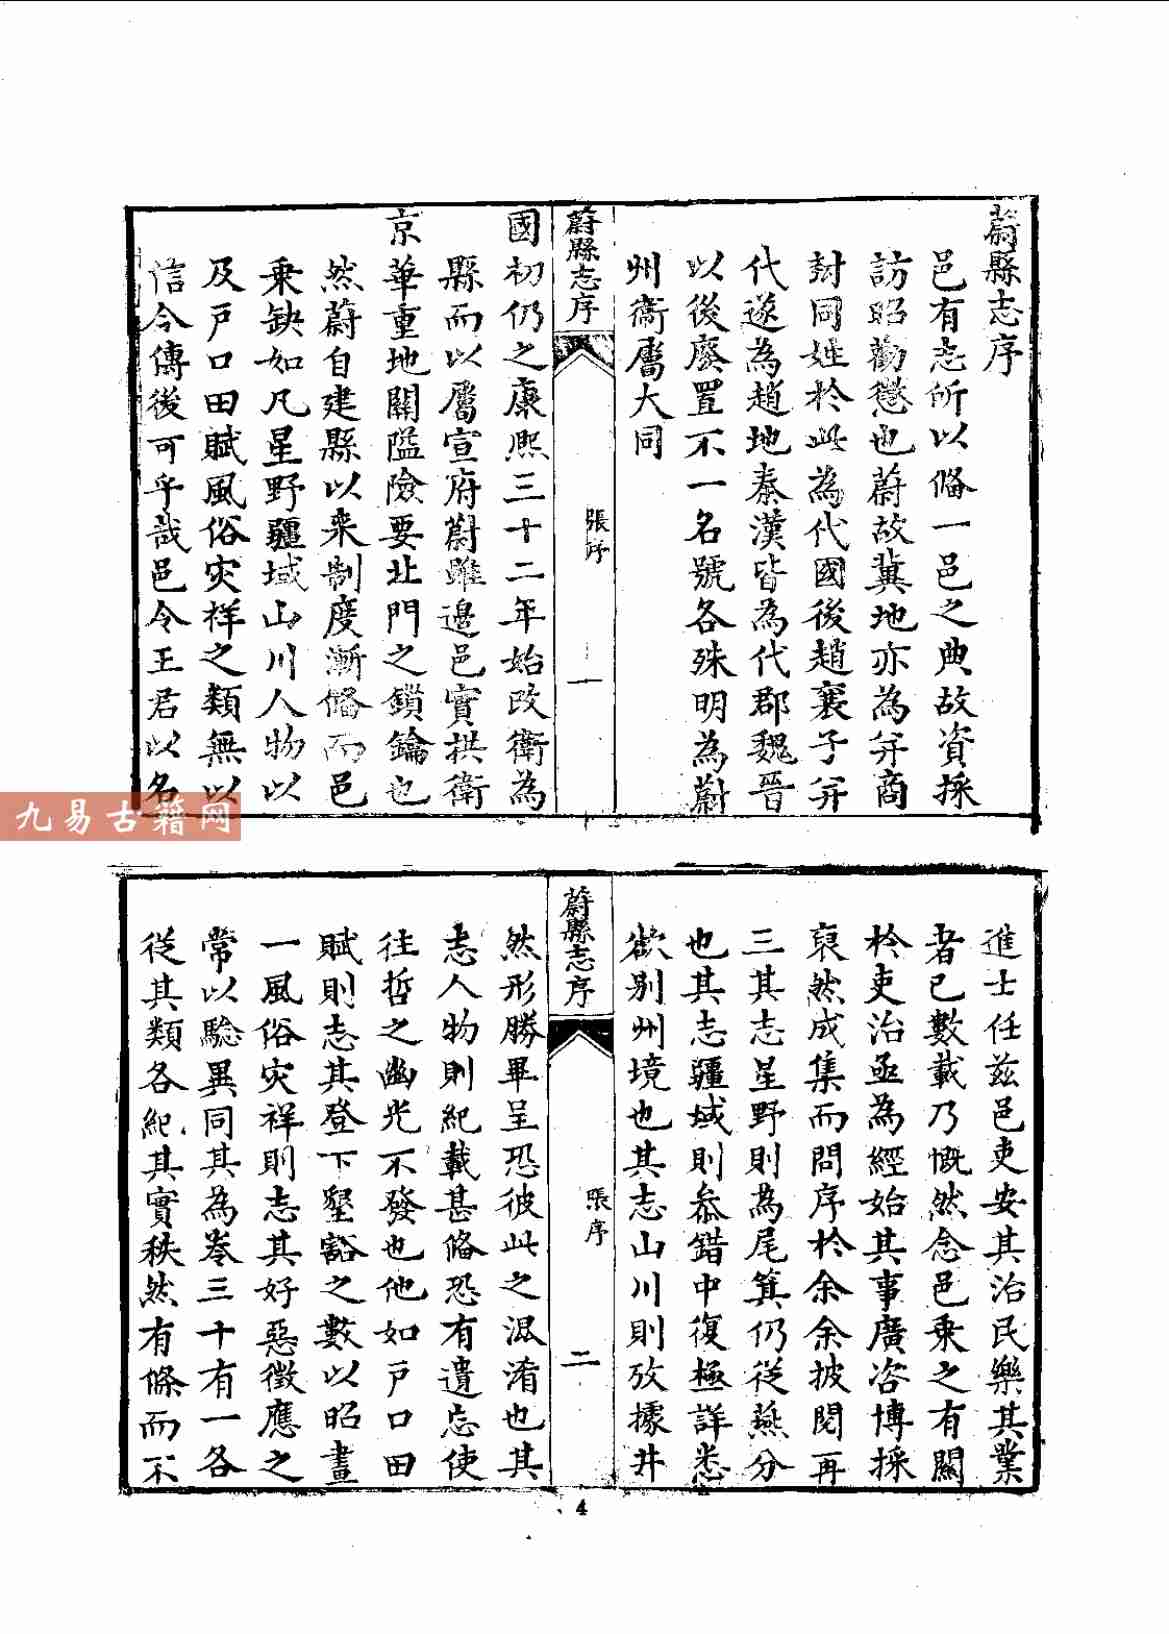 蔚縣志序
邑有志所以俻一邑之典故資採
訪昭勸懲也蔚故冀地亦為并商
封同姓於此為代國後趙襄子并
代遂為趙地秦漢皆為代郡魏晉
以後廢置不一名號各殊明為蔚
州衞屬大同
蔚縣志序
張序
一
國初仍之康熙三十二年始改衛為
縣而以屬宣府蔚雖邉邑實拱衛
京華重地關隘險要北門之鎖鑰也
然蔚自建縣以来制度漸俻而邑
乗缺如凡星野疆域山川人物以
及戸口田賦風俗灾祥之類無以
信今傳後可乎哉邑令王君以名
進士任兹邑吏安其治民樂其業
者已數載乃慨然念邑乗之有關
於吏治亟為經始其事廣咨博採
裒然成集而問序於余余披閱再
三其志星野則為尾箕仍従燕分
也其志疆域則叅錯中復極詳悉
欲别州境也其志山川則攷據井
蔚縣志序
張序
二
然形勝畢呈恐彼此之混淆也其
志人物則紀載甚俻恐有遺忘使
往哲之幽光不發也他如戸口田
賦則志其登下墾豁之數以昭畫
一風俗灾祥則志其好惡徴應之
常以驗異同其為卷三十有一各
従其類各紀其實秩然有條而不
4
九易古籍网